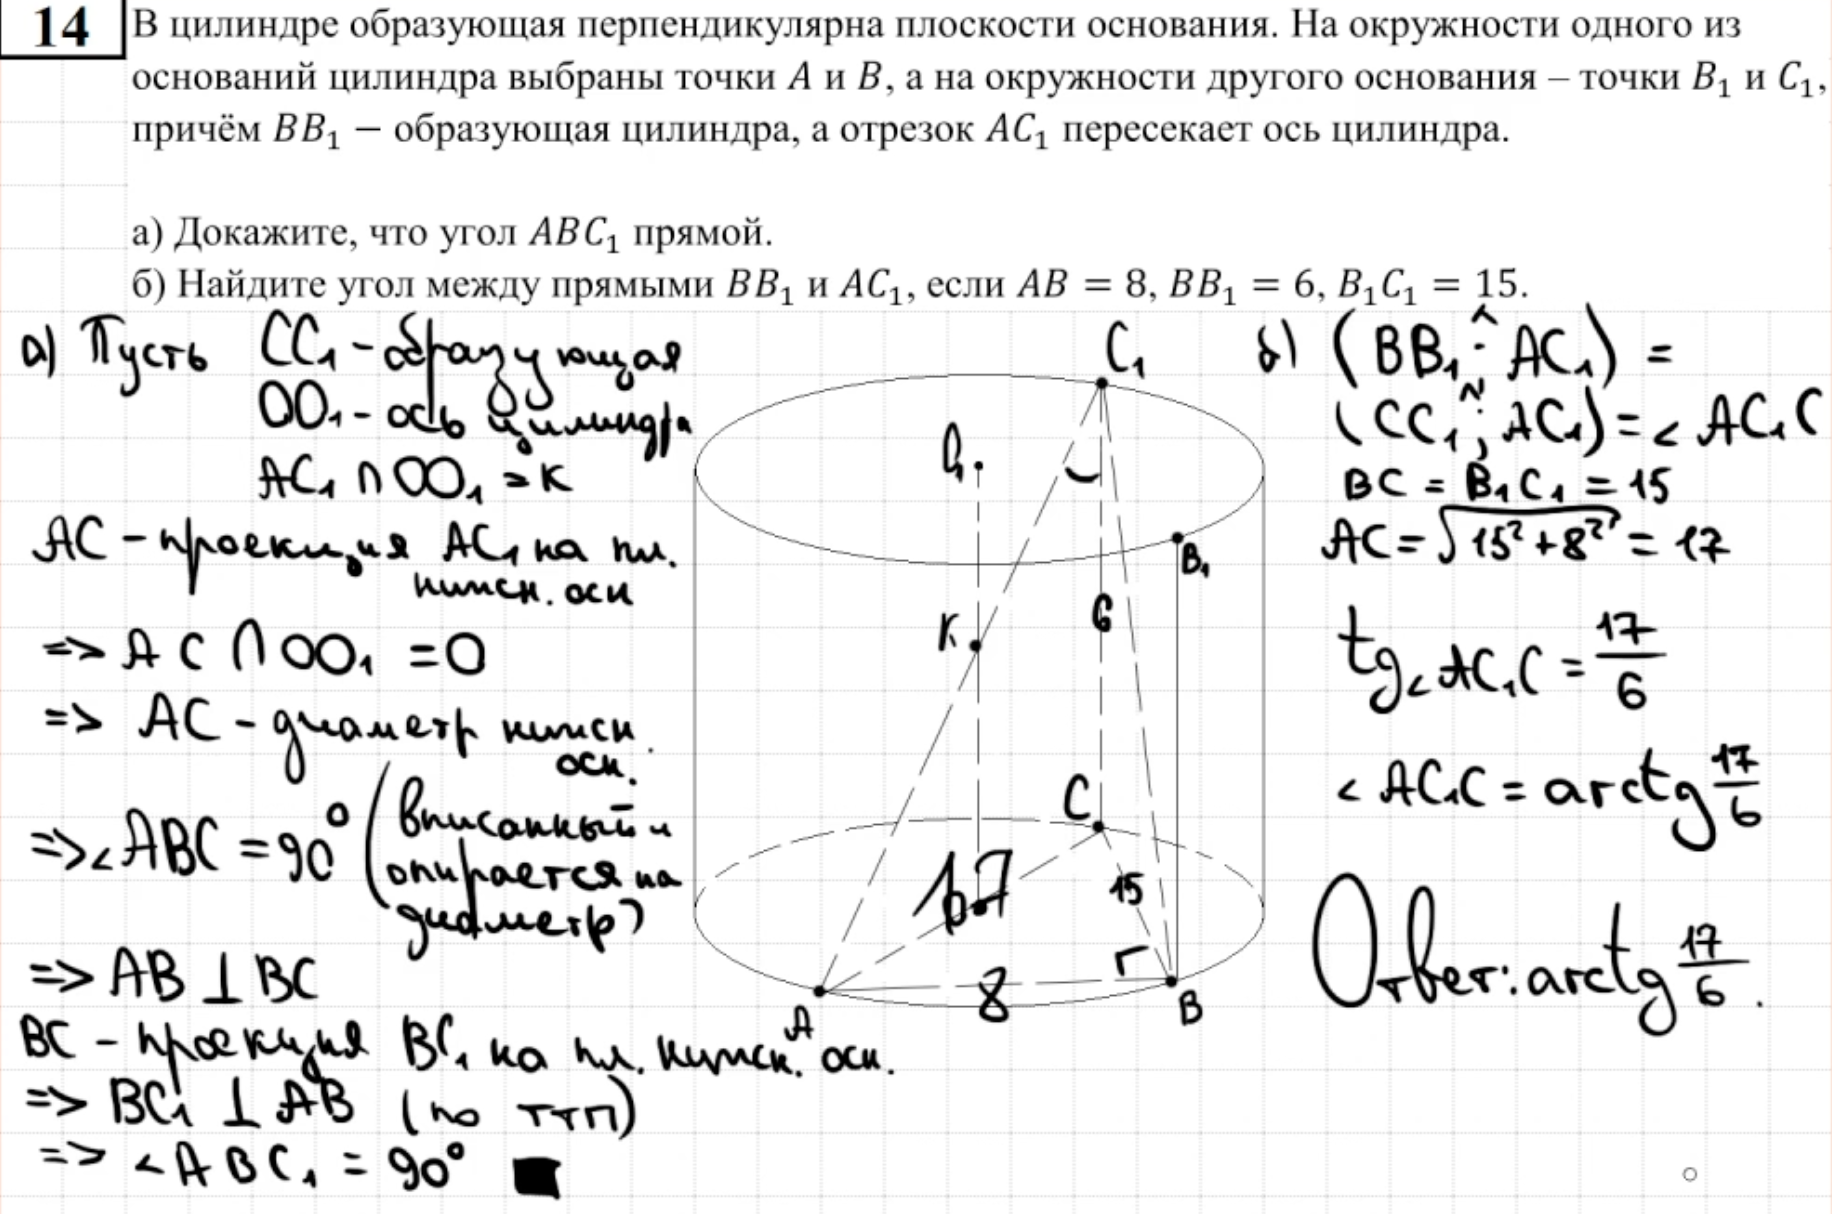 14
В цилиндре образующая перпендикулярна плоскости основания. На окружности одного из
оснований цилиндра выбраны точки A и B, а на окружности другого основания – точки B₁ и C₁,
причём BB₁ – образующая цилиндра, а отрезок AC₁ пересекает ось цилиндра.
а) Докажите, что угол ABC₁ прямой.
б) Найдите угол между прямыми BB₁ и AC₁, если AB = 8, BB₁ = 6, B₁C₁ = 15.
а) Пусть CC₁ - образующая
OO₁ - ось цилиндра
AC₁ ∩ OO₁ = K
AC - проекция AC₁ на пл.
нижн. осн
=> AC ∩ OO₁ = O
=> AC - диаметр нижн.
осн.
=> ∠ABC = 90° (вписанный и
опирается на
диаметр)
=> AB ⊥ BC
BC - проекция BC₁ на пл. нижн. осн.
=> BC₁ ⊥ AB (по ттп)
=> ∠ABC₁ = 90° ■
C₁
O₁
B₁
K
6
C
17
15
8
A
B
б) (BB₁ ; AC₁) =
(CC₁ ; AC₁) = ∠AC₁C
BC = B₁C₁ = 15
AC = √15² + 8² = 17
tg∠AC₁C = 17/6
∠AC₁C = arctg 17/6
Ответ: arctg 17/6.